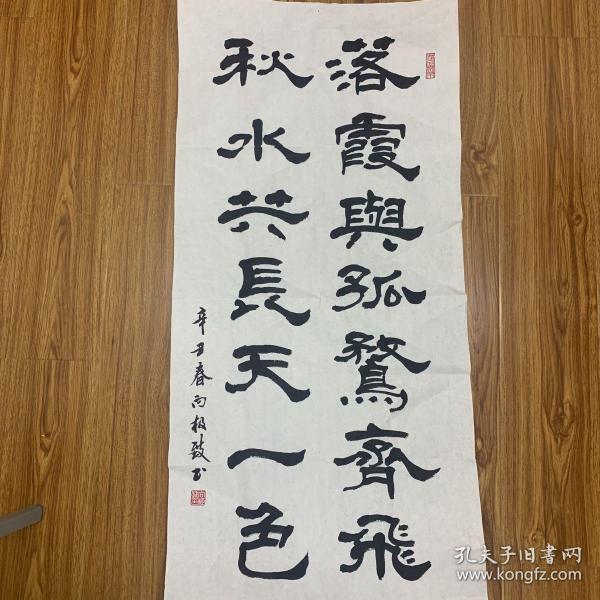 落霞與孤鶩齊飛
秋水共長天一色
辛丑春向极致书
孔夫子旧书网
www.kongfz.com